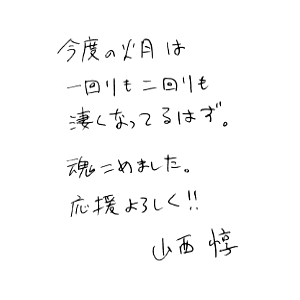 今度の火月は
一回りも二回りも
凄くなってるはず。
魂こめました。
応援よろしく!!
山西 惇